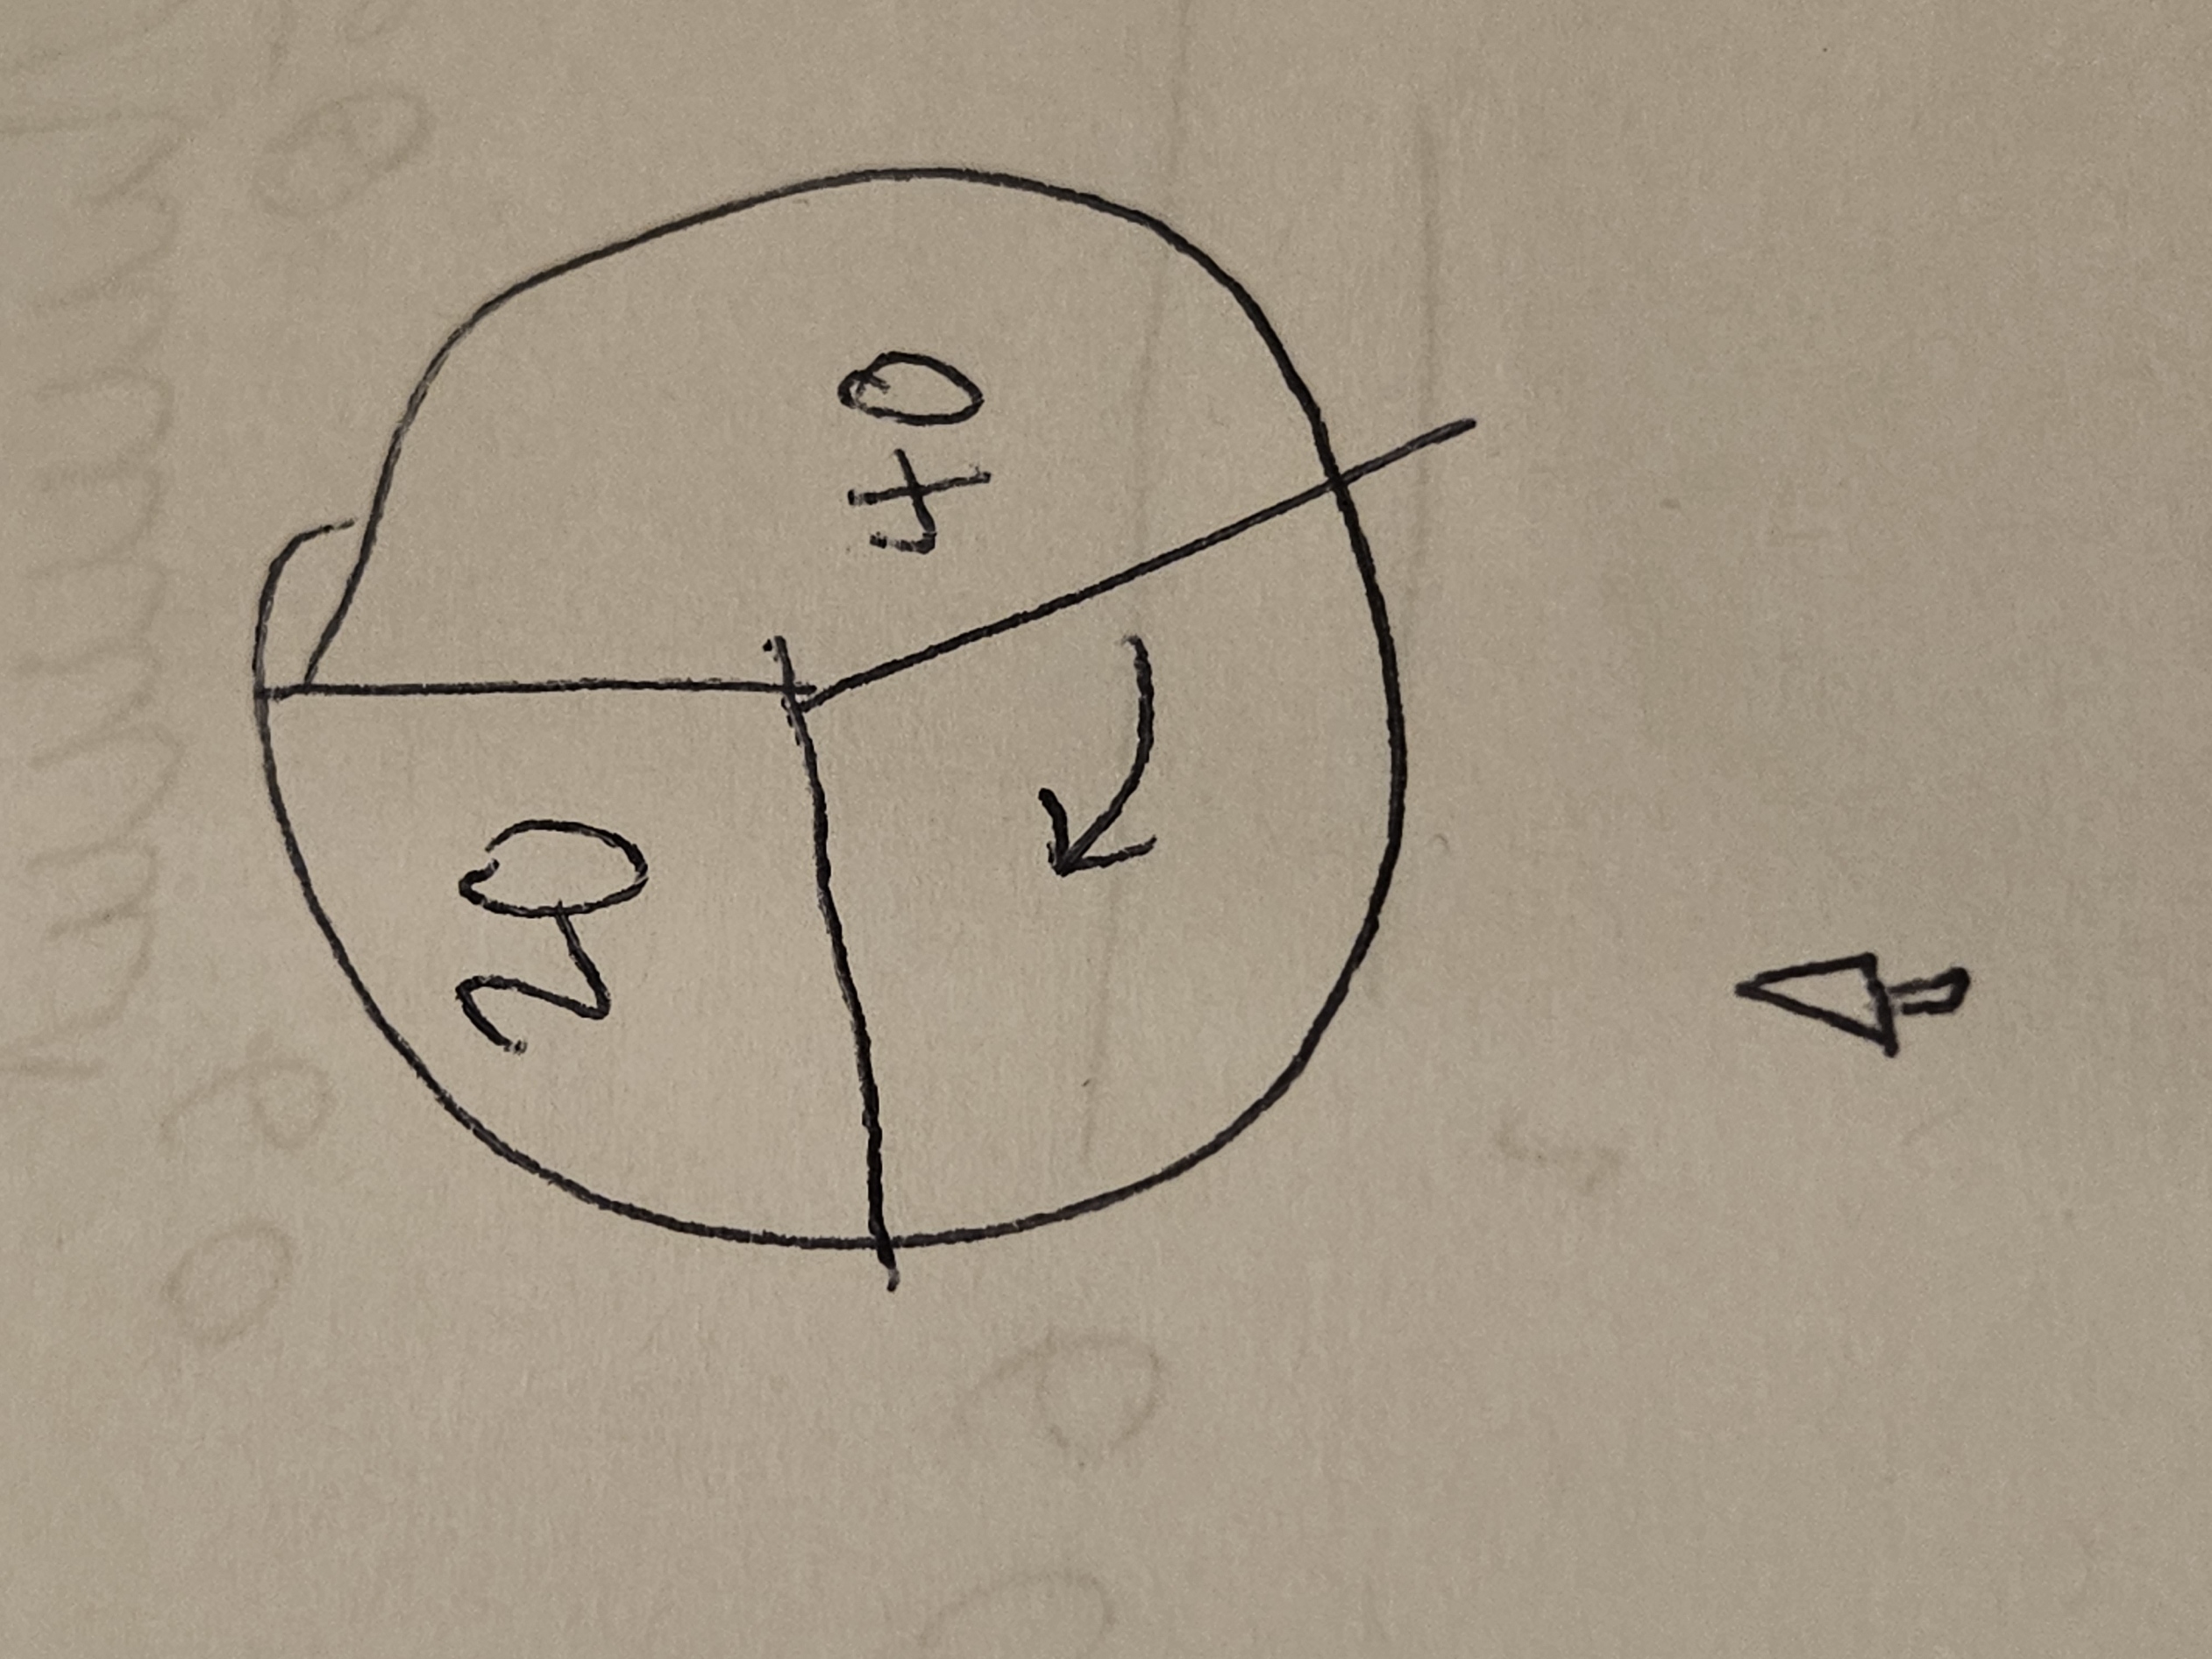 20
40